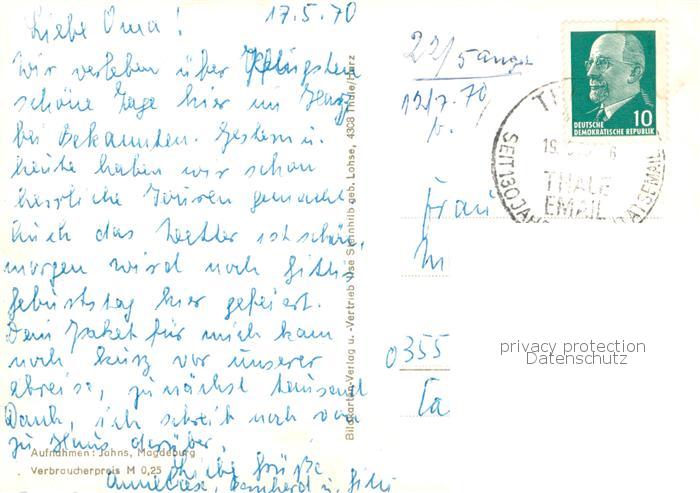 17.5.70
Liebe Oma!
Wir verleben über Pfingsten
schöne Tage hier im Harz
bei Bekannten. Gestern u.
heute haben wir schon
herrliche Touren gemacht.
Auch das Wetter ist schön,
morgen wird noch Gittis
Geburtstag hier gefeiert.
Dein Paket für mich kam
noch kurz vor unserer
Abreise, zunächst tausend
Dank, ich schreib noch von
zu Haus darüber,
Liebe Grüße
Anneliese, Bernhard u. Gitti
Aufnahmen: Jahns, Magdeburg
Verbraucherpreis M 0,25
Bildkarten-Verlag u. -Vertrieb Ilse geb. Lohse, 4308 Thale/Harz
22/5
19/7.70
DEUTSCHE
DEMOKRATISCHE REPUBLIK
10
19.
THALE
EMAIL
SEIT 130 JAHREN
Frau
0355
privacy protection
Datenschutz